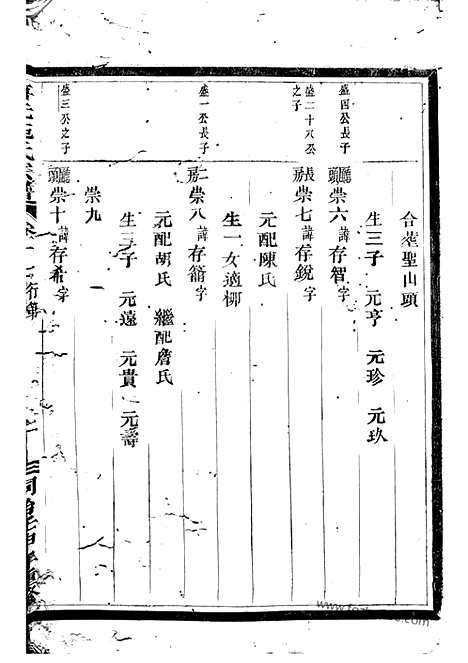 合葬聖山頭
生三子 元亨 元珍 元玖
盛四公長子
廳頭崇六諱存智字
盛二十八公之子
長房崇七諱存銳字
元配陳氏
生一女適柳
盛一公長子
二房崇八諱存籥字
元配胡氏 繼配詹氏
生三子 元遠 元貴 元壽
崇九
盛三公之子
廳頭崇十諱存希字